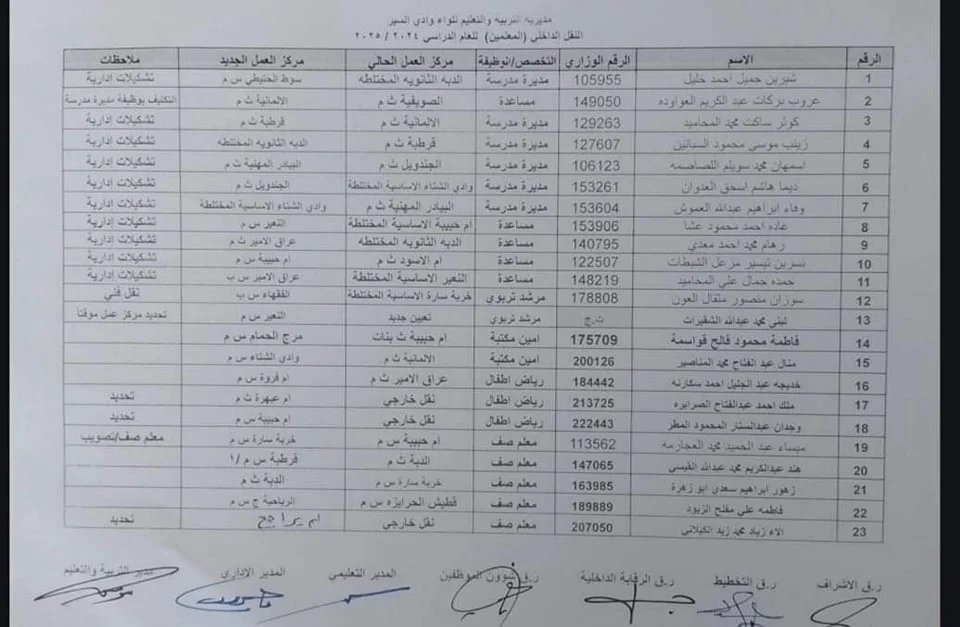 مديرية التربية والتعليم للواء وادي السير
النقل الداخلي (المعلمين) للعام الدراسي ٢٠٢٤ / ٢٠٢٥
الرقم الاسم الرقم الوزاري التخصص/الوظيفة مركز العمل الحالي مركز العمل الجديد ملاحظات
1 شيرين جميل احمد خليل 105955 مديرة مدرسة الدبه الثانويه المختلطه سوط الحنيطي س م تشكيلات إدارية
2 عروب بركات عبد الكريم العواوده 149050 مساعدة الصويفية ث م الالمانية ث م التكليف بوظيفة مديرة مدرسة
3 كوثر ساكت محمد المحاميد 129263 مديرة مدرسة الالمانية ث م قرطبة ث م تشكيلات إدارية
4 زينب موسى محمود السباتين 127607 مديرة مدرسة قرطبة ث م الدبه الثانويه المختلطه تشكيلات إدارية
5 اسمهان محمد سويلم اللصاصمه 106123 مديرة مدرسة الجندويل ث م البيادر المهنية ث م تشكيلات إدارية
6 ديما هاشم اسحق العدوان 153261 مديرة مدرسة وادي الشتاء الاساسية المختلطة الجندويل ث م تشكيلات إدارية
7 وفاء ابراهيم عبدالله العموش 153604 مديرة مدرسة البيادر المهنية ث م وادي الشتاء الاساسية المختلطة تشكيلات إدارية
8 غاده احمد محمود عشا 153906 مساعدة ام حبيبة الاساسية المختلطة النعير س م تشكيلات إدارية
9 رهام محمد احمد معدي 140795 مساعدة الدبه الثانويه المختلطه عراق الامير ث م تشكيلات إدارية
10 نسرين تيسير مزعل الشبطات 122507 مساعدة ام الاسود ث م ام حبيبة س م تشكيلات إدارية
11 حمده جمال علي المحاميد 148219 مساعدة النعير الاساسية المختلطة عراق الامير س ب تشكيلات إدارية
12 سوزان منصور مثقال العون 178808 مرشد تربوي خربة سارة الاساسية المختلطة الفقهاء س ب نقل فني
13 لبنى محمد عبدالله الشقيرات ت.ج مرشد تربوي تعيين جديد النعير س م تحديد مركز عمل موقتا
14 فاطمة محمود فالح قواسمة 175709 امين مكتبة ام حبيبة ث بنات مرج الحمام س م
15 منال عبد الفتاح محمد المناصير 200126 امين مكتبة الالمانية ث م وادي الشتاء س م
16 خديجه عبد الجليل احمد سكارنه 184442 رياض اطفال عراق الامير ث م ام فروة س م
17 ملك احمد عبدالفتاح الصرايره 213725 رياض اطفال نقل خارجي ام عبهرة ث م تحديد
18 وجدان عبدالستار المحمود المطر 222443 رياض اطفال نقل خارجي ام حبيبة س م تحديد
19 ميساء عبد الحميد محمد العجارمه 113562 معلم صف ام حبيبة س م خربة سارة س م معلم صف/تصويب
20 هند عبدالكريم محمد عبدالله القيسي 147065 معلم صف الدبة ث م قرطبة س م /١
21 زهور ابراهيم سعدي ابو زهرة 163985 معلم صف خربة سارة س م الدبة ث م
22 فاطمه علي مفلح الزيود 189889 معلم صف قطيش الحرايزه س م الرباحية ج س م
23 الاء زياد محمد زيد الكيلاني 207050 معلم صف نقل خارجي ام تحديد
ر.ق الاشراف ر.ق التخطيط ر.ق الرقابة الداخلية ر.ق شؤون الموظفين المدير التعليمي المدير الاداري مدير التربية والتعليم